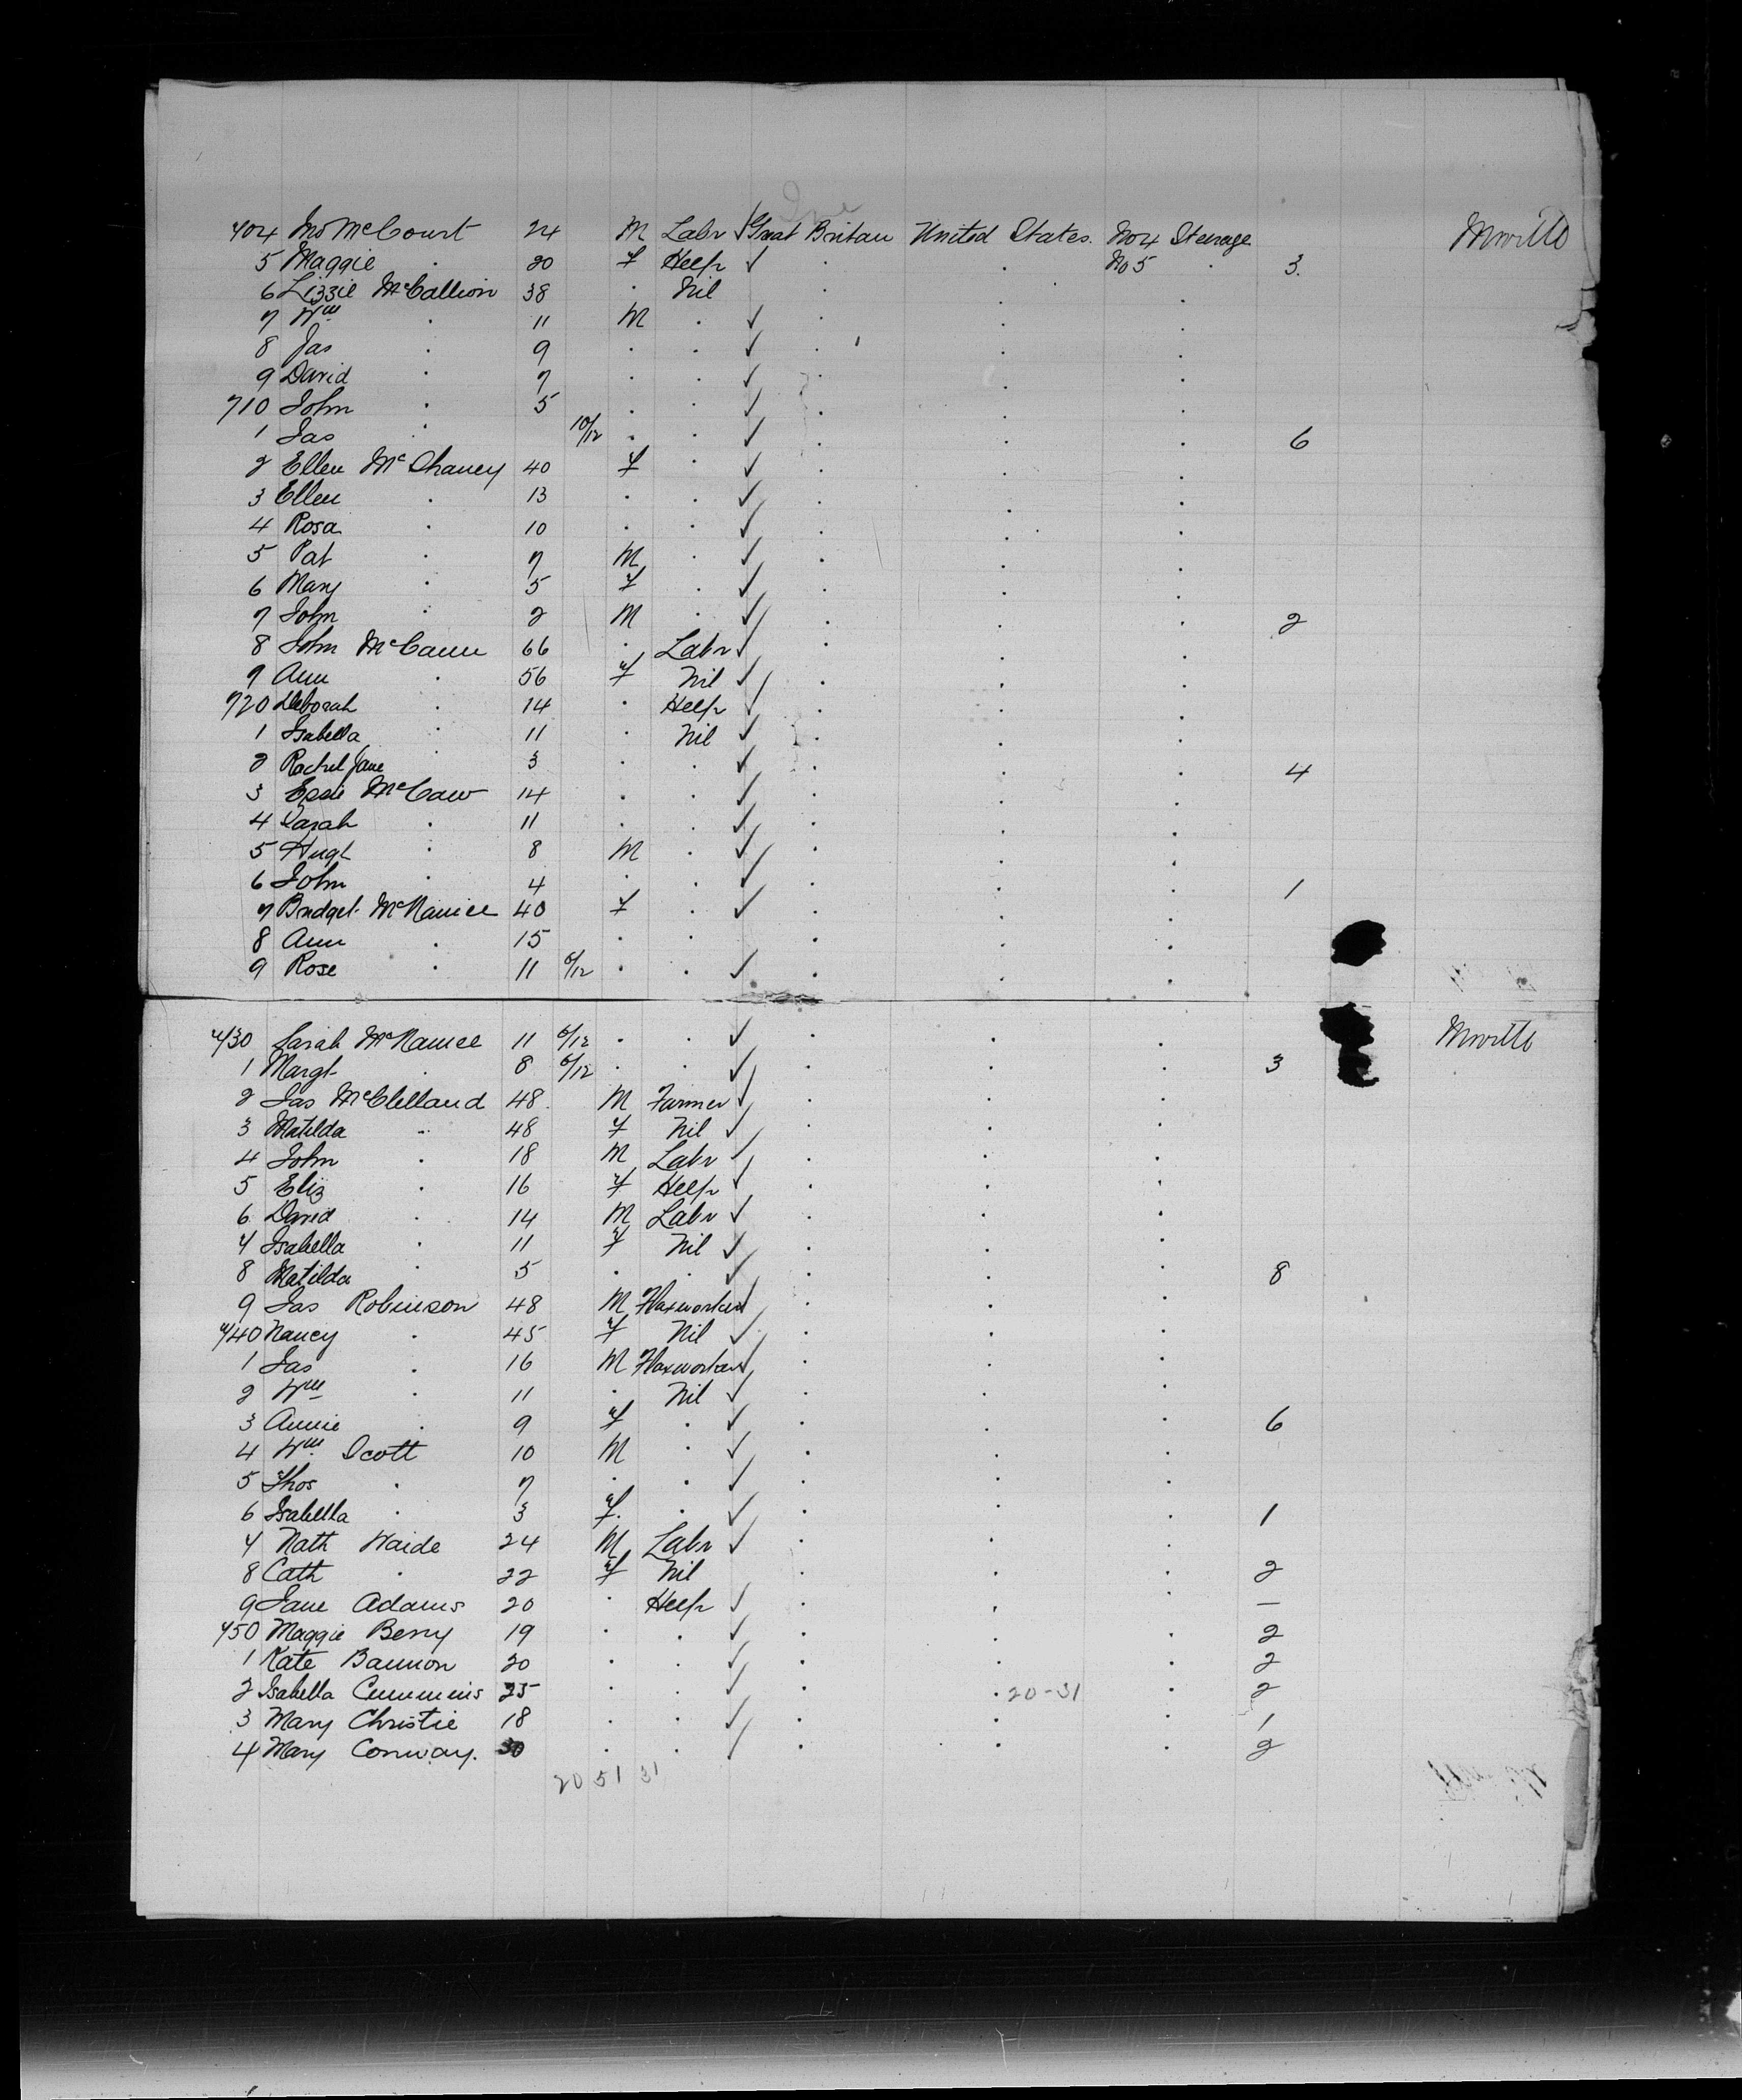 704 Jno McCourt 24 M Labr ✓ Great Britain United States. No 4 Steerage Moville
5 Maggie . 20 F Help ✓ . . No 5 . 3.
6 Lizzie McCallion 38 . Nil . . .
7 Wm . 11 M . ✓ . . .
8 Jas . 9 . . ✓ . . .
9 David . 7 . . ✓ . . .
710 John . 5 . . ✓ . . .
1 Jas . 10/12 . . ✓ . . . 6
2 Ellen McShaney 40 F . ✓ . . .
3 Ellen . 13 . . ✓ . . .
4 Rosa . 10 . . ✓ . . .
5 Pat . 7 M . ✓ . . .
6 Mary . 5 F . ✓ . . .
7 John . 2 M . ✓ . . . 2
8 John McCann 66 . Labr ✓ . . .
9 Ann . 56 F Nil ✓ . . .
720 Deborah . 14 . Help ✓ . . .
1 Isabella . 11 . Nil ✓ . . .
2 Rachel Jane . 3 . . ✓ . . . 4
3 Essie McCaw 14 . . ✓ . . .
4 Sarah . 11 . . ✓ . . .
5 Hugh . 8 M . ✓ . . .
6 John . 4 . . ✓ . . . 1
7 Bridget McNamee 40 F . ✓ . . .
8 Ann . 15 . . . . .
9 Rose . 11 6/12 . . ✓ . . .
730 Sarah McNamee 11 6/12 . . ✓ . . . Moville
1 Margt . 8 6/12 . . ✓ . . . 3
2 Jas McClelland 48 M Farmer ✓ . . .
3 Matilda . 48 F Nil ✓ . . .
4 John . 18 M Labr ✓ . . .
5 Eliz . 16 F Help ✓ . . .
6 David . 14 M Labr ✓ . . .
7 Isabella . 11 F Nil ✓ . . .
8 Matilda . 5 . . ✓ . . . 8
9 Jas Robinson 48 M Flaxworker ✓ . . .
740 Nancy . 45 F Nil ✓ . . .
1 Jas . 16 M Flaxworker ✓ . . .
2 Wm . 11 . Nil ✓ . . .
3 Annie . 9 F . ✓ . . . 6
4 Wm Scott 10 M . ✓ . . .
5 Thos . 7 . . ✓ . . .
6 Isabella . 3 F. . ✓ . . . 1
7 Nath Waide 24 M Labr ✓ . . .
8 Cath . 22 F Nil . . . 2
9 Jane Adams 20 . Help ✓ . . . –
750 Maggie Berry 19 . . ✓ . . . 2
1 Kate Bannon 20 . . ✓ . . . 2
2 Isabella Cummins 25 . . ✓ . . 20-31 . 2
3 Mary Christie 18 . . ✓ . . . 1
4 Mary Conway. 30 . . ✓ . . . 2
20 51 31